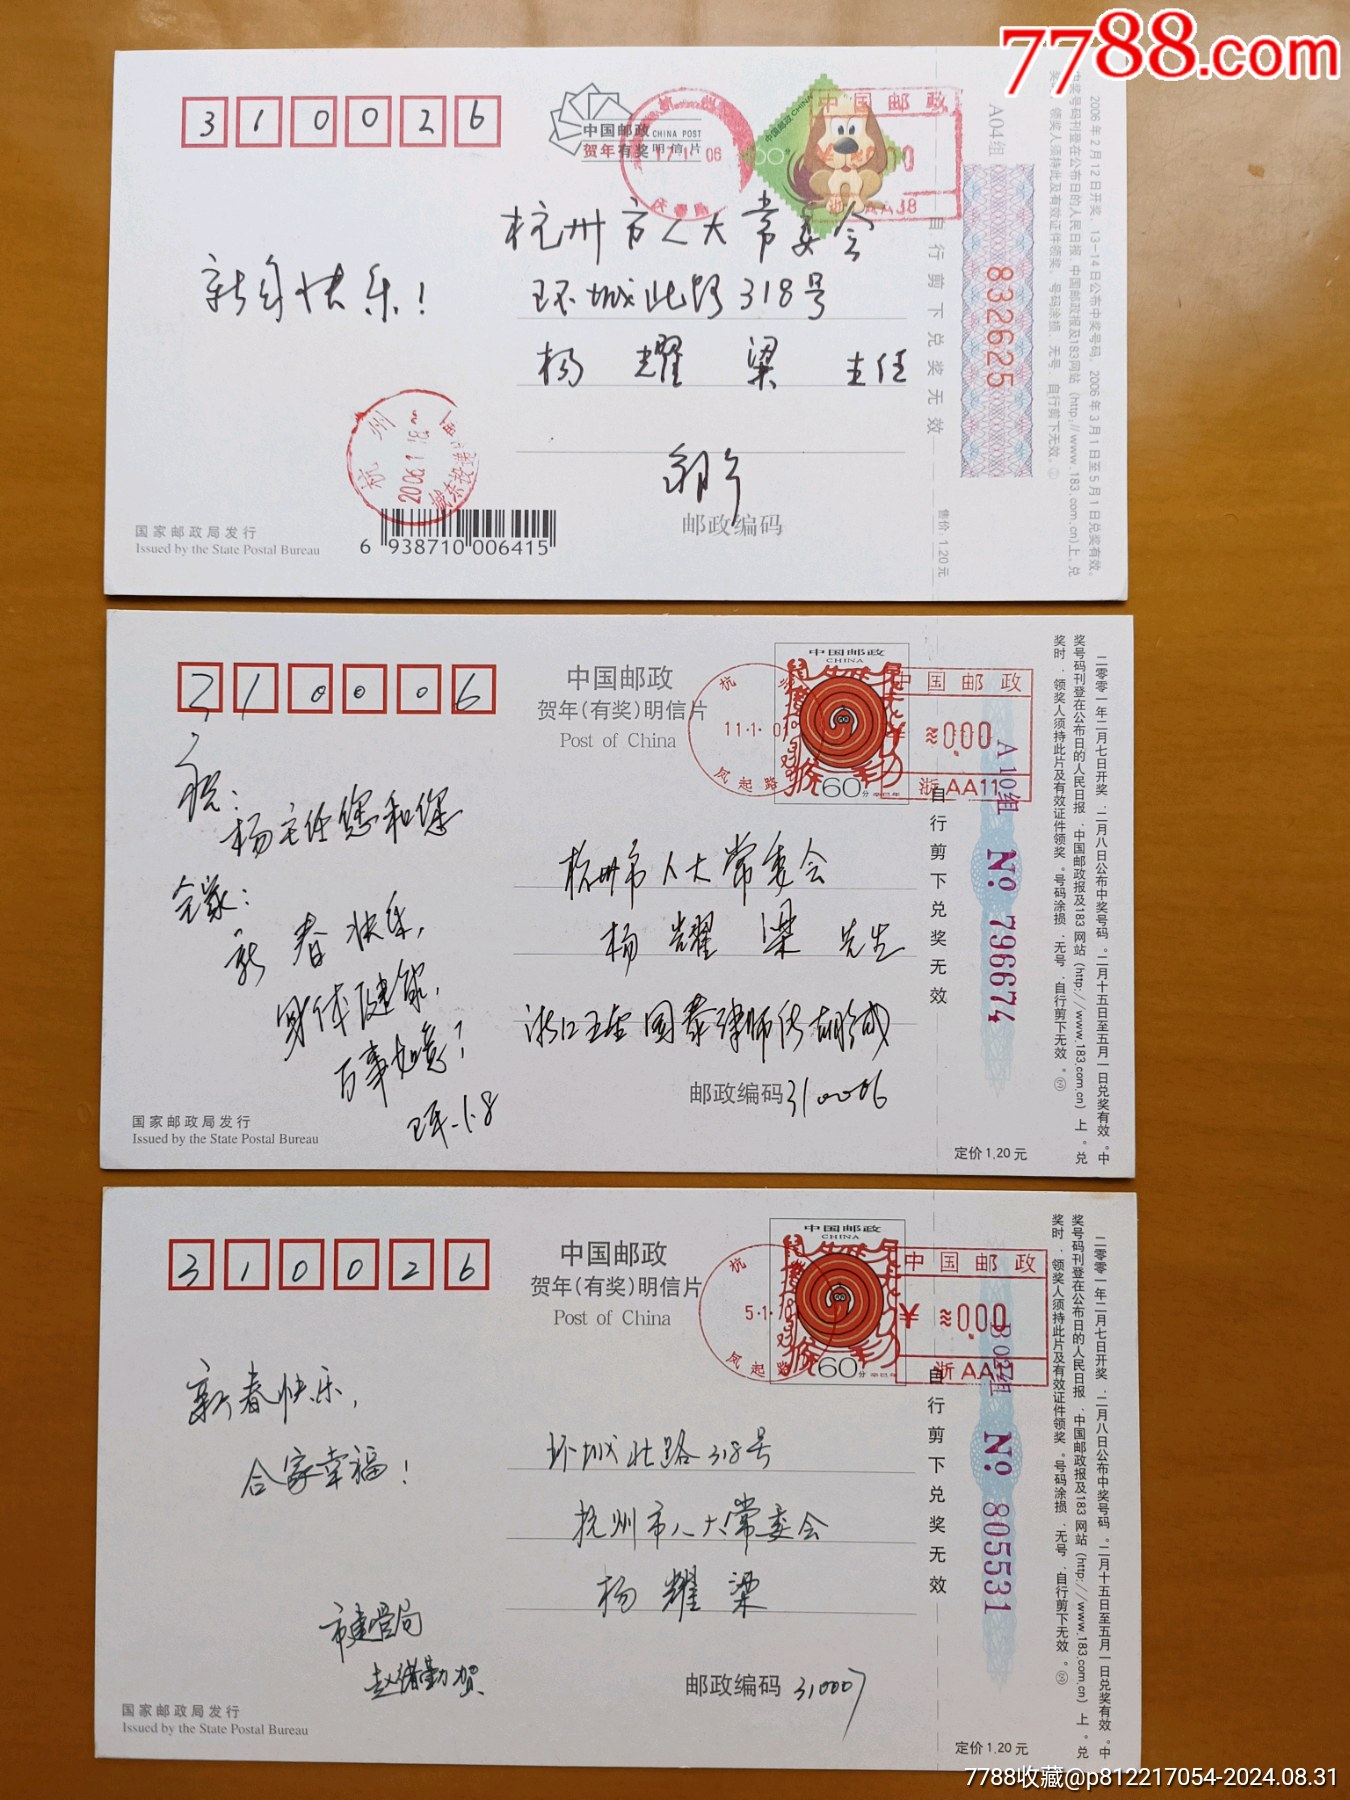 7788.com
310026
中国邮政 CHINA POST
贺年有奖明信片
17.1.06
中国邮政
杭州市人大常委会
环城北路318号
杨耀梁 主任
新年快乐!
杭州
2006.1.18
国家邮政局发行
Issued by the State Postal Bureau
6 938710 006415
邮政编码
自行剪下兑奖无效
售价:1.20元
A04组
832625
2006年2月12日开奖,13-14日公布中奖号码,2006年3月1日至5月1日兑奖有效。
中奖号码刊登在公布日的人民日报、中国邮政报及183网站(http://www.183.com.cn)上,兑
奖时,领奖人须持此片及有效证件领奖。号码涂损、无号、自行剪下无效。
310006
中国邮政
贺年(有奖)明信片
Post of China
中国邮政
CHINA
60分
中国邮政
11.1.0
凤起路
≈0.00
浙AA11
祝:
杨主任您和您
全家:
新春快乐,
身体健康,
万事如意!
杭州市人大常委会
杨耀梁 先生
邮政编码310006
国家邮政局发行
Issued by the State Postal Bureau
自行剪下兑奖无效
定价1.20元
A10组
No. 796674
二零零一年二月七日开奖,二月八日公布中奖号码。二月十五日至五月一日兑奖有效。中
奖号码刊登在公布日的人民日报、中国邮政报及183网站(http://www.183.com.cn)上。兑
奖时,领奖人须持此片及有效证件领奖。号码涂损、无号、自行剪下无效。
310026
中国邮政
贺年(有奖)明信片
Post of China
中国邮政
CHINA
60分
中国邮政
5.1.
凤起路
¥≈0.00
浙AA
新春快乐,
合家幸福!
市建管局
环城北路318号
杭州市人大常委会
杨耀梁
邮政编码 310007
国家邮政局发行
Issued by the State Postal Bureau
自行剪下兑奖无效
定价1.20元
No. 805531
二零零一年二月七日开奖,二月八日公布中奖号码。二月十五日至五月一日兑奖有效。中
奖号码刊登在公布日的人民日报、中国邮政报及183网站(http://www.183.com.cn)上。兑
奖时,领奖人须持此片及有效证件领奖。号码涂损、无号、自行剪下无效。
7788收藏@p812217054-2024.08.31